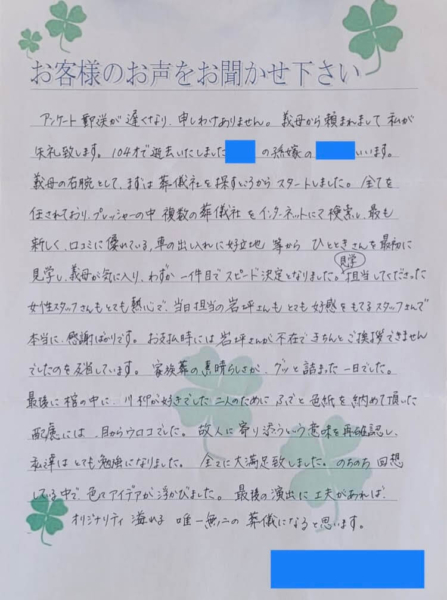 お客様のお声をお聞かせ下さい
アンケート郵送が遅くなり、申しわけありません。義母から頼まれまして私が
失礼致します。104才で逝去いたしました の孫嫁の いいます。
義母の右腕として、まずは葬儀社を探すいうからスタートしました。全てを
任されており、プレッシャーの中 複数の葬儀社をインターネットにて検索し、最も
新しく、口コミに優れている、車の出し入れに好立地 等から ひとときさんを最初に
見学し、義母が気に入り、わずか一件目でスピード決定となりました。見学担当してくださった
女性スタッフさんもとても熱心で、当日担当の岩坪さんもとても好感をもてるスタッフさんで
本当に、感謝ばかりです。お支払時には岩坪さんが不在できちんとご挨拶できません
でしたのを しています。家族葬の素晴らしさが、グッと詰まった一日でした。
最後に棺の中に、川柳が好きでした二人のために ふでと色紙を納めて頂いた
配慮には、目からウロコでした。故人に寄り添うという意味を再確認し、
私達はとても勉強になりました。全てに大満足致しました。のちのち 回想
している中で 色々アイデアが浮かびました。最後の演出に工夫があれば、
オリジナリティ溢れる 唯一無二の葬儀になると思います。